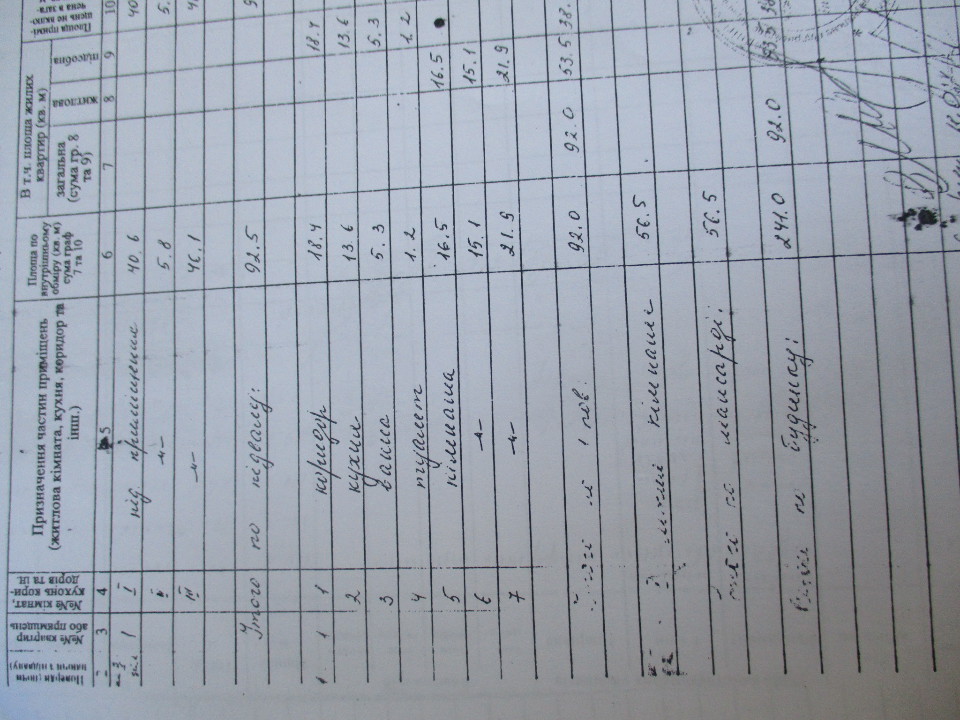 Поверхи (почи-
наючи з підвалу)
№№ квартир
або приміщень
№№ кімнат,
кухонь кори-
дорів та ін.
Призначення частин приміщень
(житлова кімната, кухня, коридор та
інш.)
Площа по
внутрішньому
обміру (кв. м)
сума граф
7 та 10
В т.ч. площа жилих
квартир (кв. м)
загальна
(сума гр. 8
та 9)
житлова
підсобна
Площа примі-
щень не вклю-
чена в зага-
3 4 5 6 7 8 9 10
1 I під. приміщення 40.6 40
II -"- 5.8 5.
III -"- 46.1
Ітого по підвалу: 92.5 9
1 1 1 коридор 18.4 18.4
2 кухня 13.6 13.6
3 ванна 5.3 5.3
4 туалет 1.2 1.2
5 кімната 16.5 16.5
6 -"- 15.1 15.1
7 -"- 21.9 21.9
1 пов. 92.0 92.0 53.5 38.
кімнати 56.5
по мансарді: 56.5
по будинку: 241.0 92.0 53.5